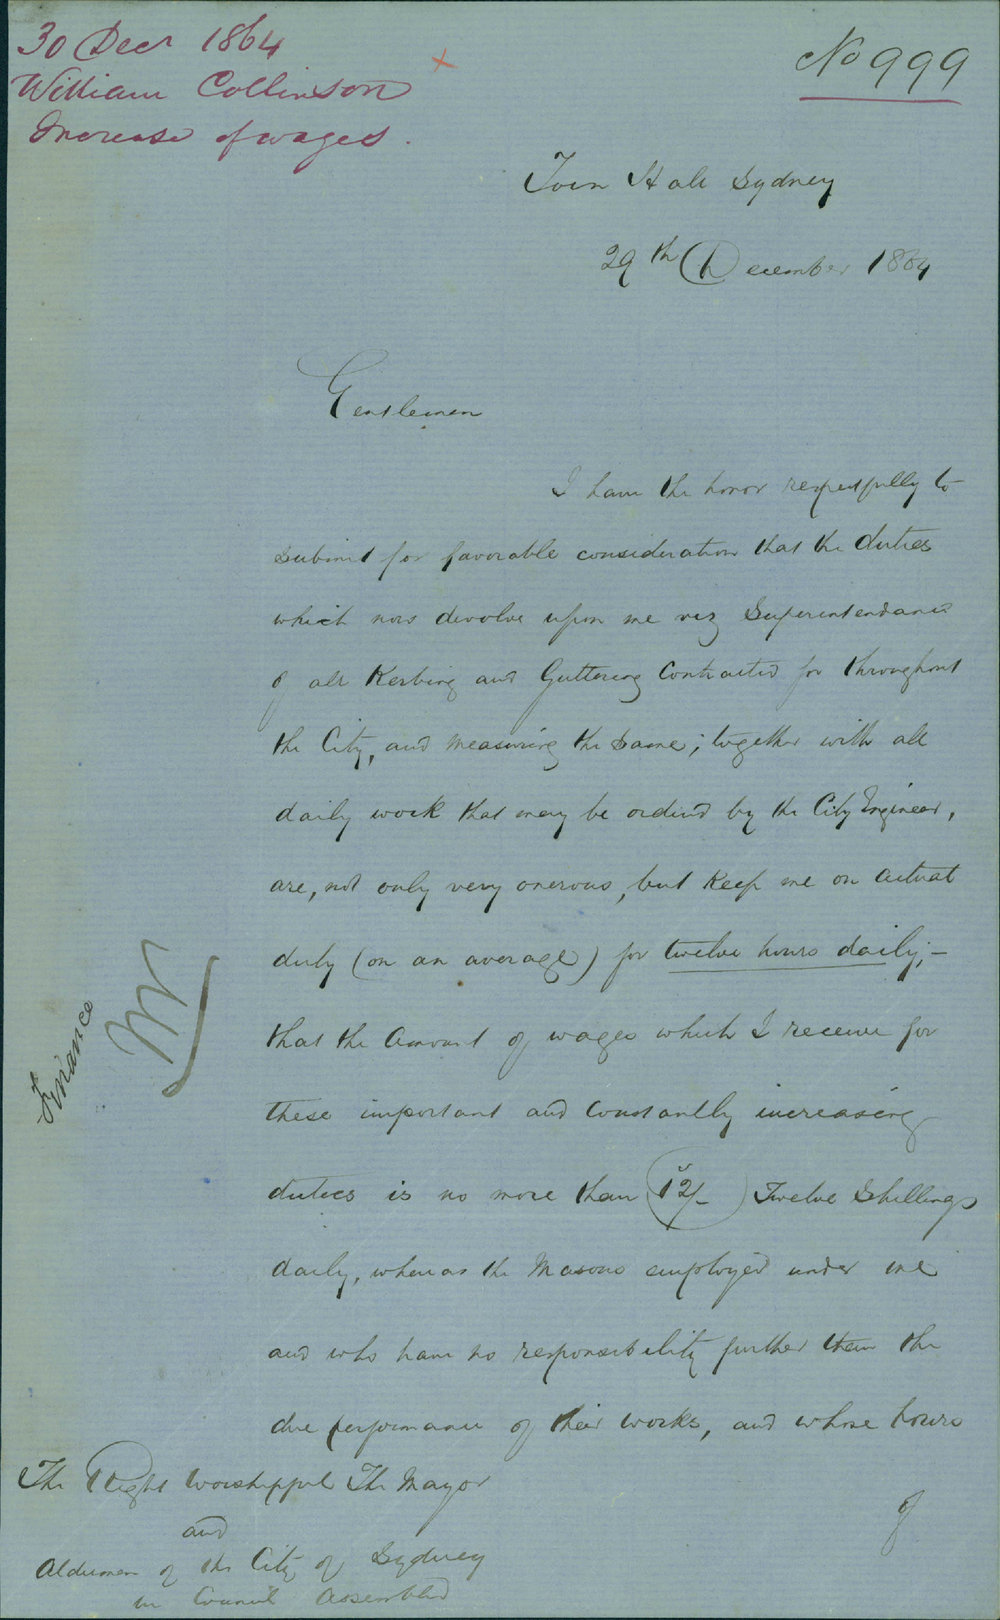 30 Decr 1864
William Collinson
Increase of wages.
No 999
Town Hall Sydney
29th December 1864
Gentlemen
I have the honor respectfully to
submit for favorable consideration that the duties
which now devolve upon me viz Superintendance
of all Kerbing and Guttering Contracted for throughout
the City, and measuring the same; together with all
daily work that may be ordered by the City Engineer,
are, not only very onerous, but Keep me on actual
duty (on an average) for twelve hours daily;—
that the Amount of wages which I receive for
these important and Constantly increasing
duties is no more than (12/-) Twelve Shillings
daily, whereas the Masons employed under me
and who have no responsibility further than the
due performance of their works, and whose hours
of
The Right Worshipful The Mayor
and
Aldermen of the City of Sydney
in Council Assembled
Finance